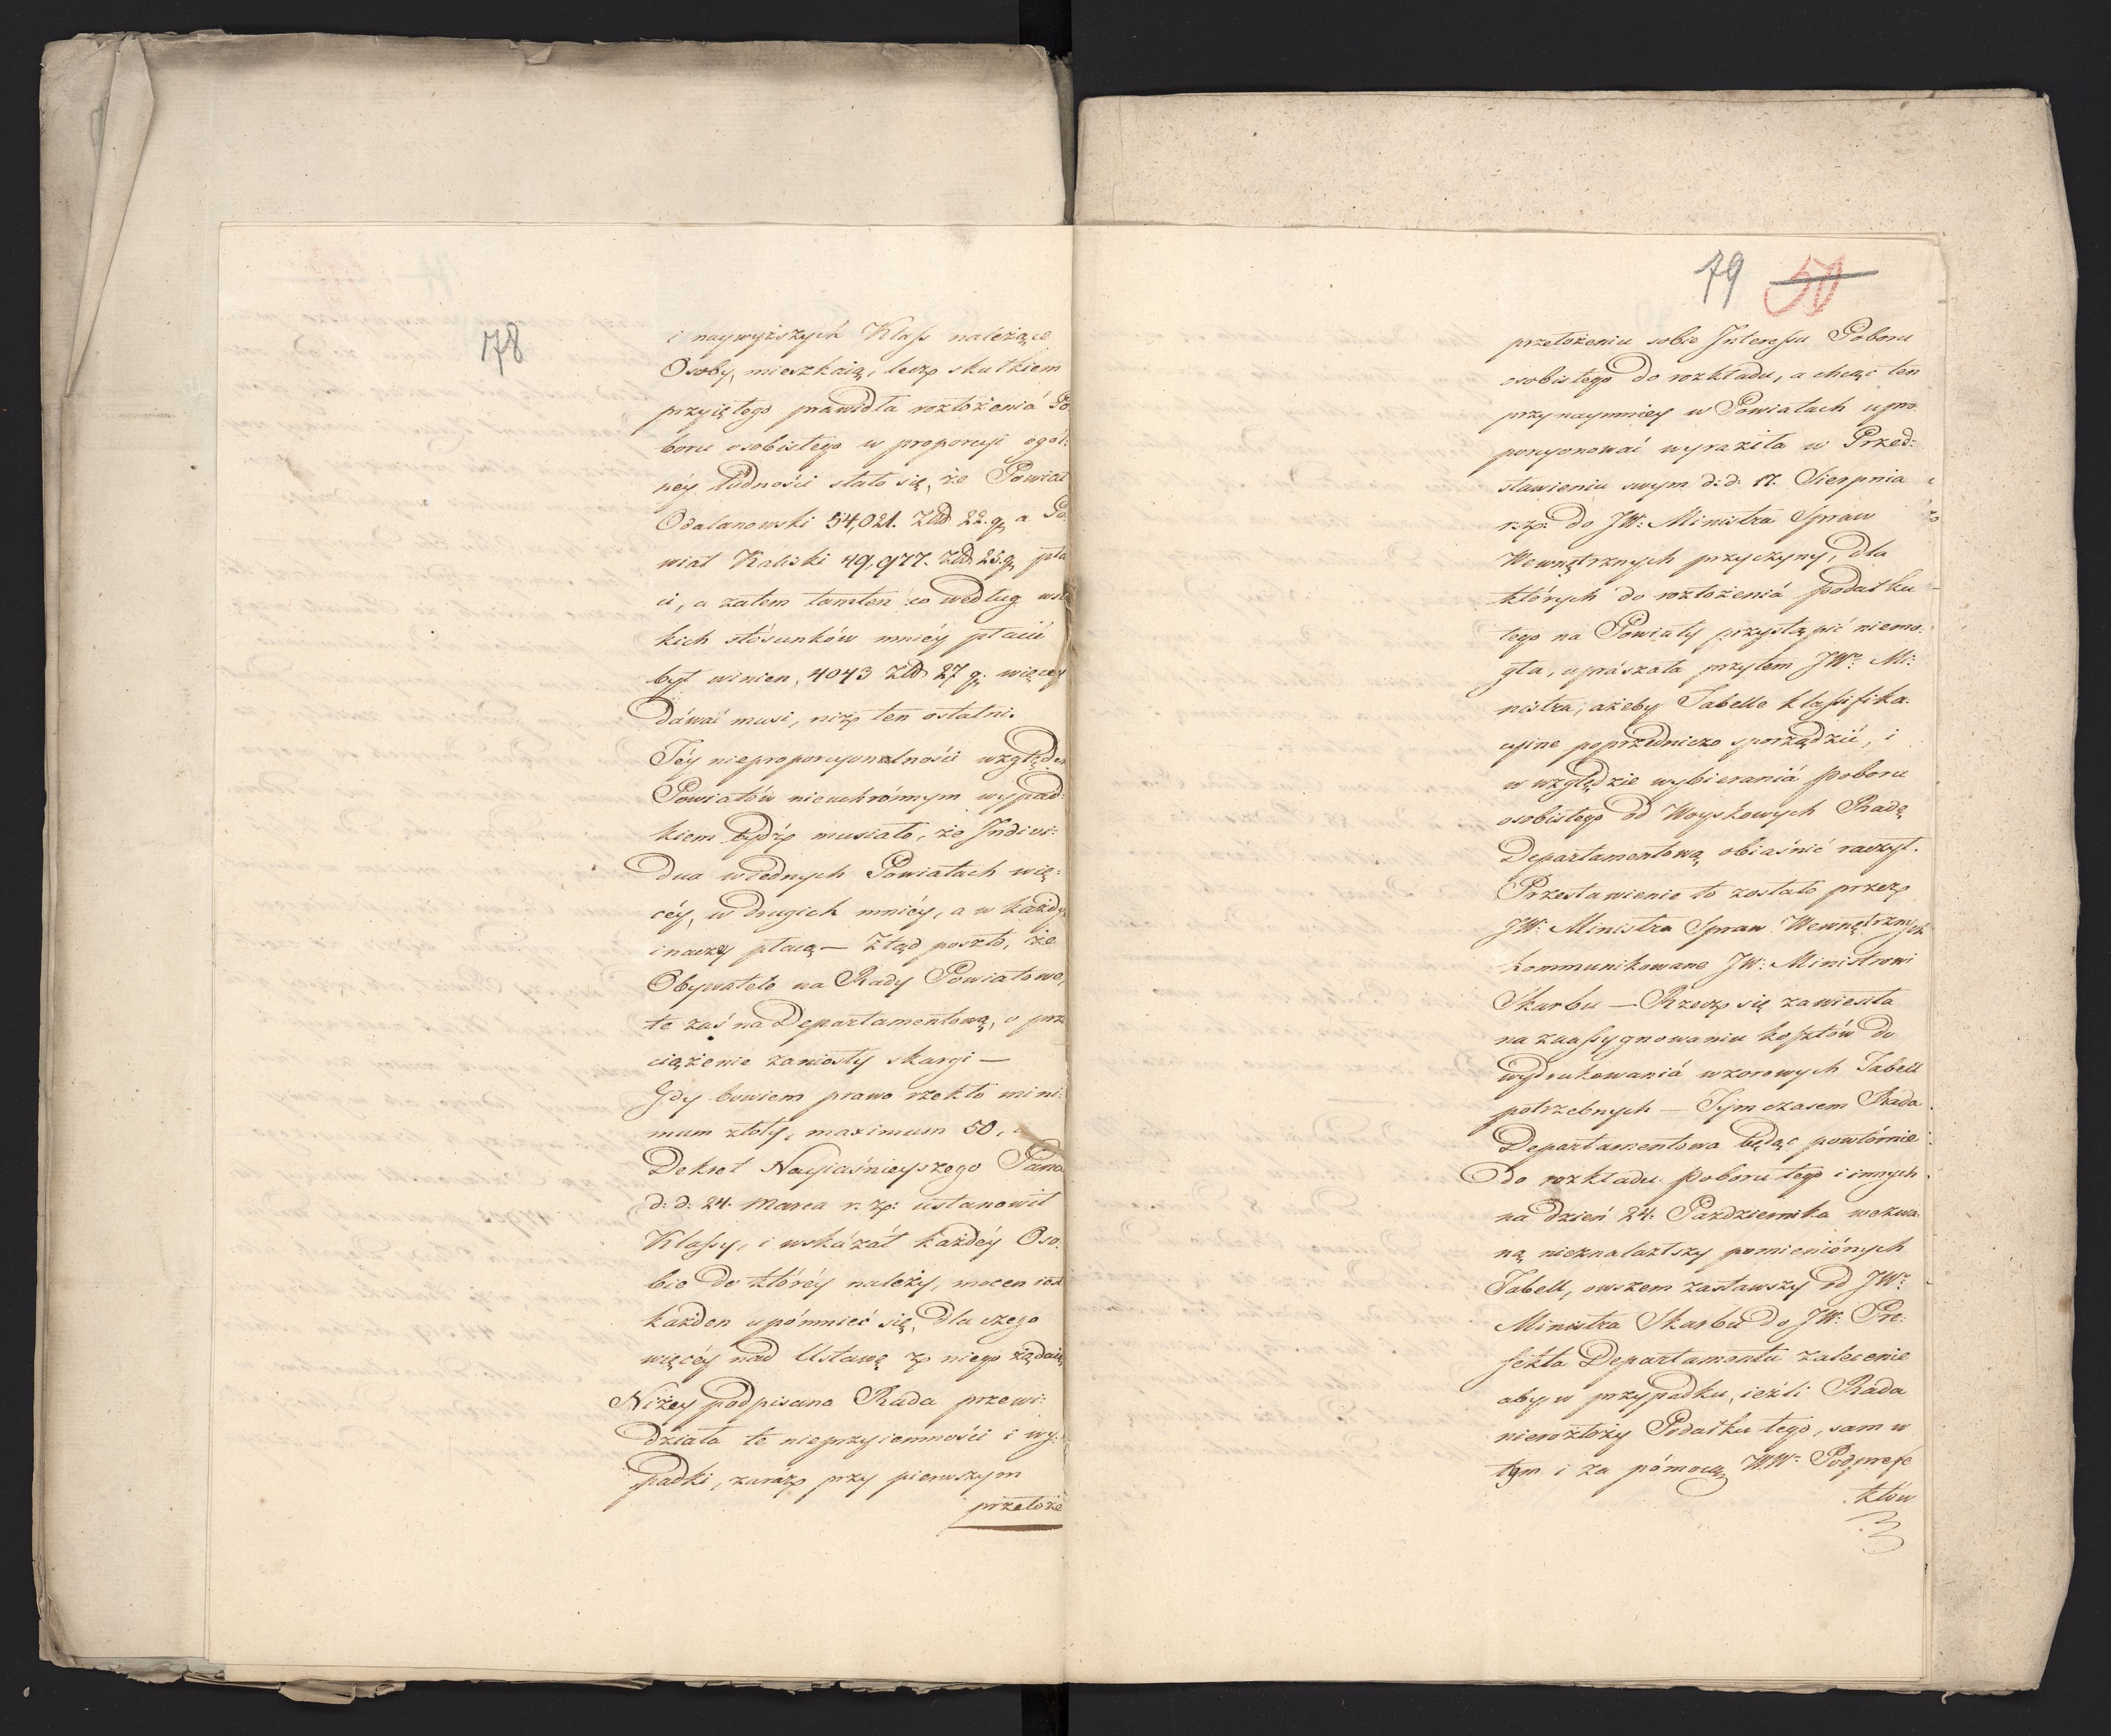 78
i naywyższych Klass należące
Osoby, mieszkaią, lecz skutkiem
przyiętego prawidła rozłożeniá Po
boru osobistego w proporcyi ogól:
néy ludności stało się, że Powiat
Odalanowski 54,021. Złł 22. g. a Po:
wiat Kaliski 49,977. Złł 25. g. pła
ci, a zatem tamten co według
kich stósunków mniéy płacić
był winien, 4043 Złł 27 g: więcey
dáwać musi, niż ten ostatni.
Téy nieproporcyonalności względem
Powiatów nieuchrónnym wypad:
kiem bydź musiało, że Indivi:
dua w iednych Powiatach wię:
céy, w drugich mniéy, a w każdym
inaczéy płacą — Ztąd poszło, że
Obywatele na Rady Powiatowe,
te zaś na Departamentową, o prze
ciążenie zaniosły skargi —
Gdy bowiem prawo rzekło mini:
mum złoty, maximum 50,
Dekret Nayiaśnieyszego Pana
d: d: 24. Marca r. z: ustanowił
Klassy, i wskázáł każdéy Oso:
bie do któréy należy, mocen iest
każden upómnieć się, dla czego
więcéy nad Ustawę z niego żądaią
Niżey podpisana Rada przewi:
działa te nieprzyiemności i wy:
padki, zaráz przy pierwszym
przełoże
79 50
przełożeniu sobie Interessu Poboru
osobistego do rozkładu, a chcąc ten
przynaymniey w Powiatach upro:
porcyonować wyraziła w Przed:
stawieniu swym d: d: 17. Sierpnia
r. z: do JW: Ministra Spraw
Wewnętrznych przyczyny, dla
których do rozłożeniá podatku
tego na Powiaty przystąpić niemo:
gła, upraszała przytem JWo: Mi:
nistra, ażeby Tabelle klassifika:
cyine poprzedniczo sporządzić, i
w względzie wybieraniá poboru
osobistego od Woyskowych Radę
Departamentową obiaśnić raczył.
Przestawienie to zostało przez
JW: Ministra Spraw Wewnętrznych
kommunikowane JW: Ministrowi
Skarbu — Rzecz się zawiesiła
na zaassygnowaniu kosztów do
wydrukowaniá wzorowych Tabell
potrzebnych — Tym czasem Rada
Departamentowa będąc powtórnie
do rozkładu poboru tego i innych
na dzień 24. Października wezwa:
ną nieznalazłszy pomieniónych
Tabell, owszem zastawszy od JWo:
Ministra Skarbu do JW: Pre:
fekta Departamentu zalecenie
aby w przypadku, ieźli Rada
nierozłoży Podatku tego, sam w
tym i za pómocą WW: Podprefe
któw